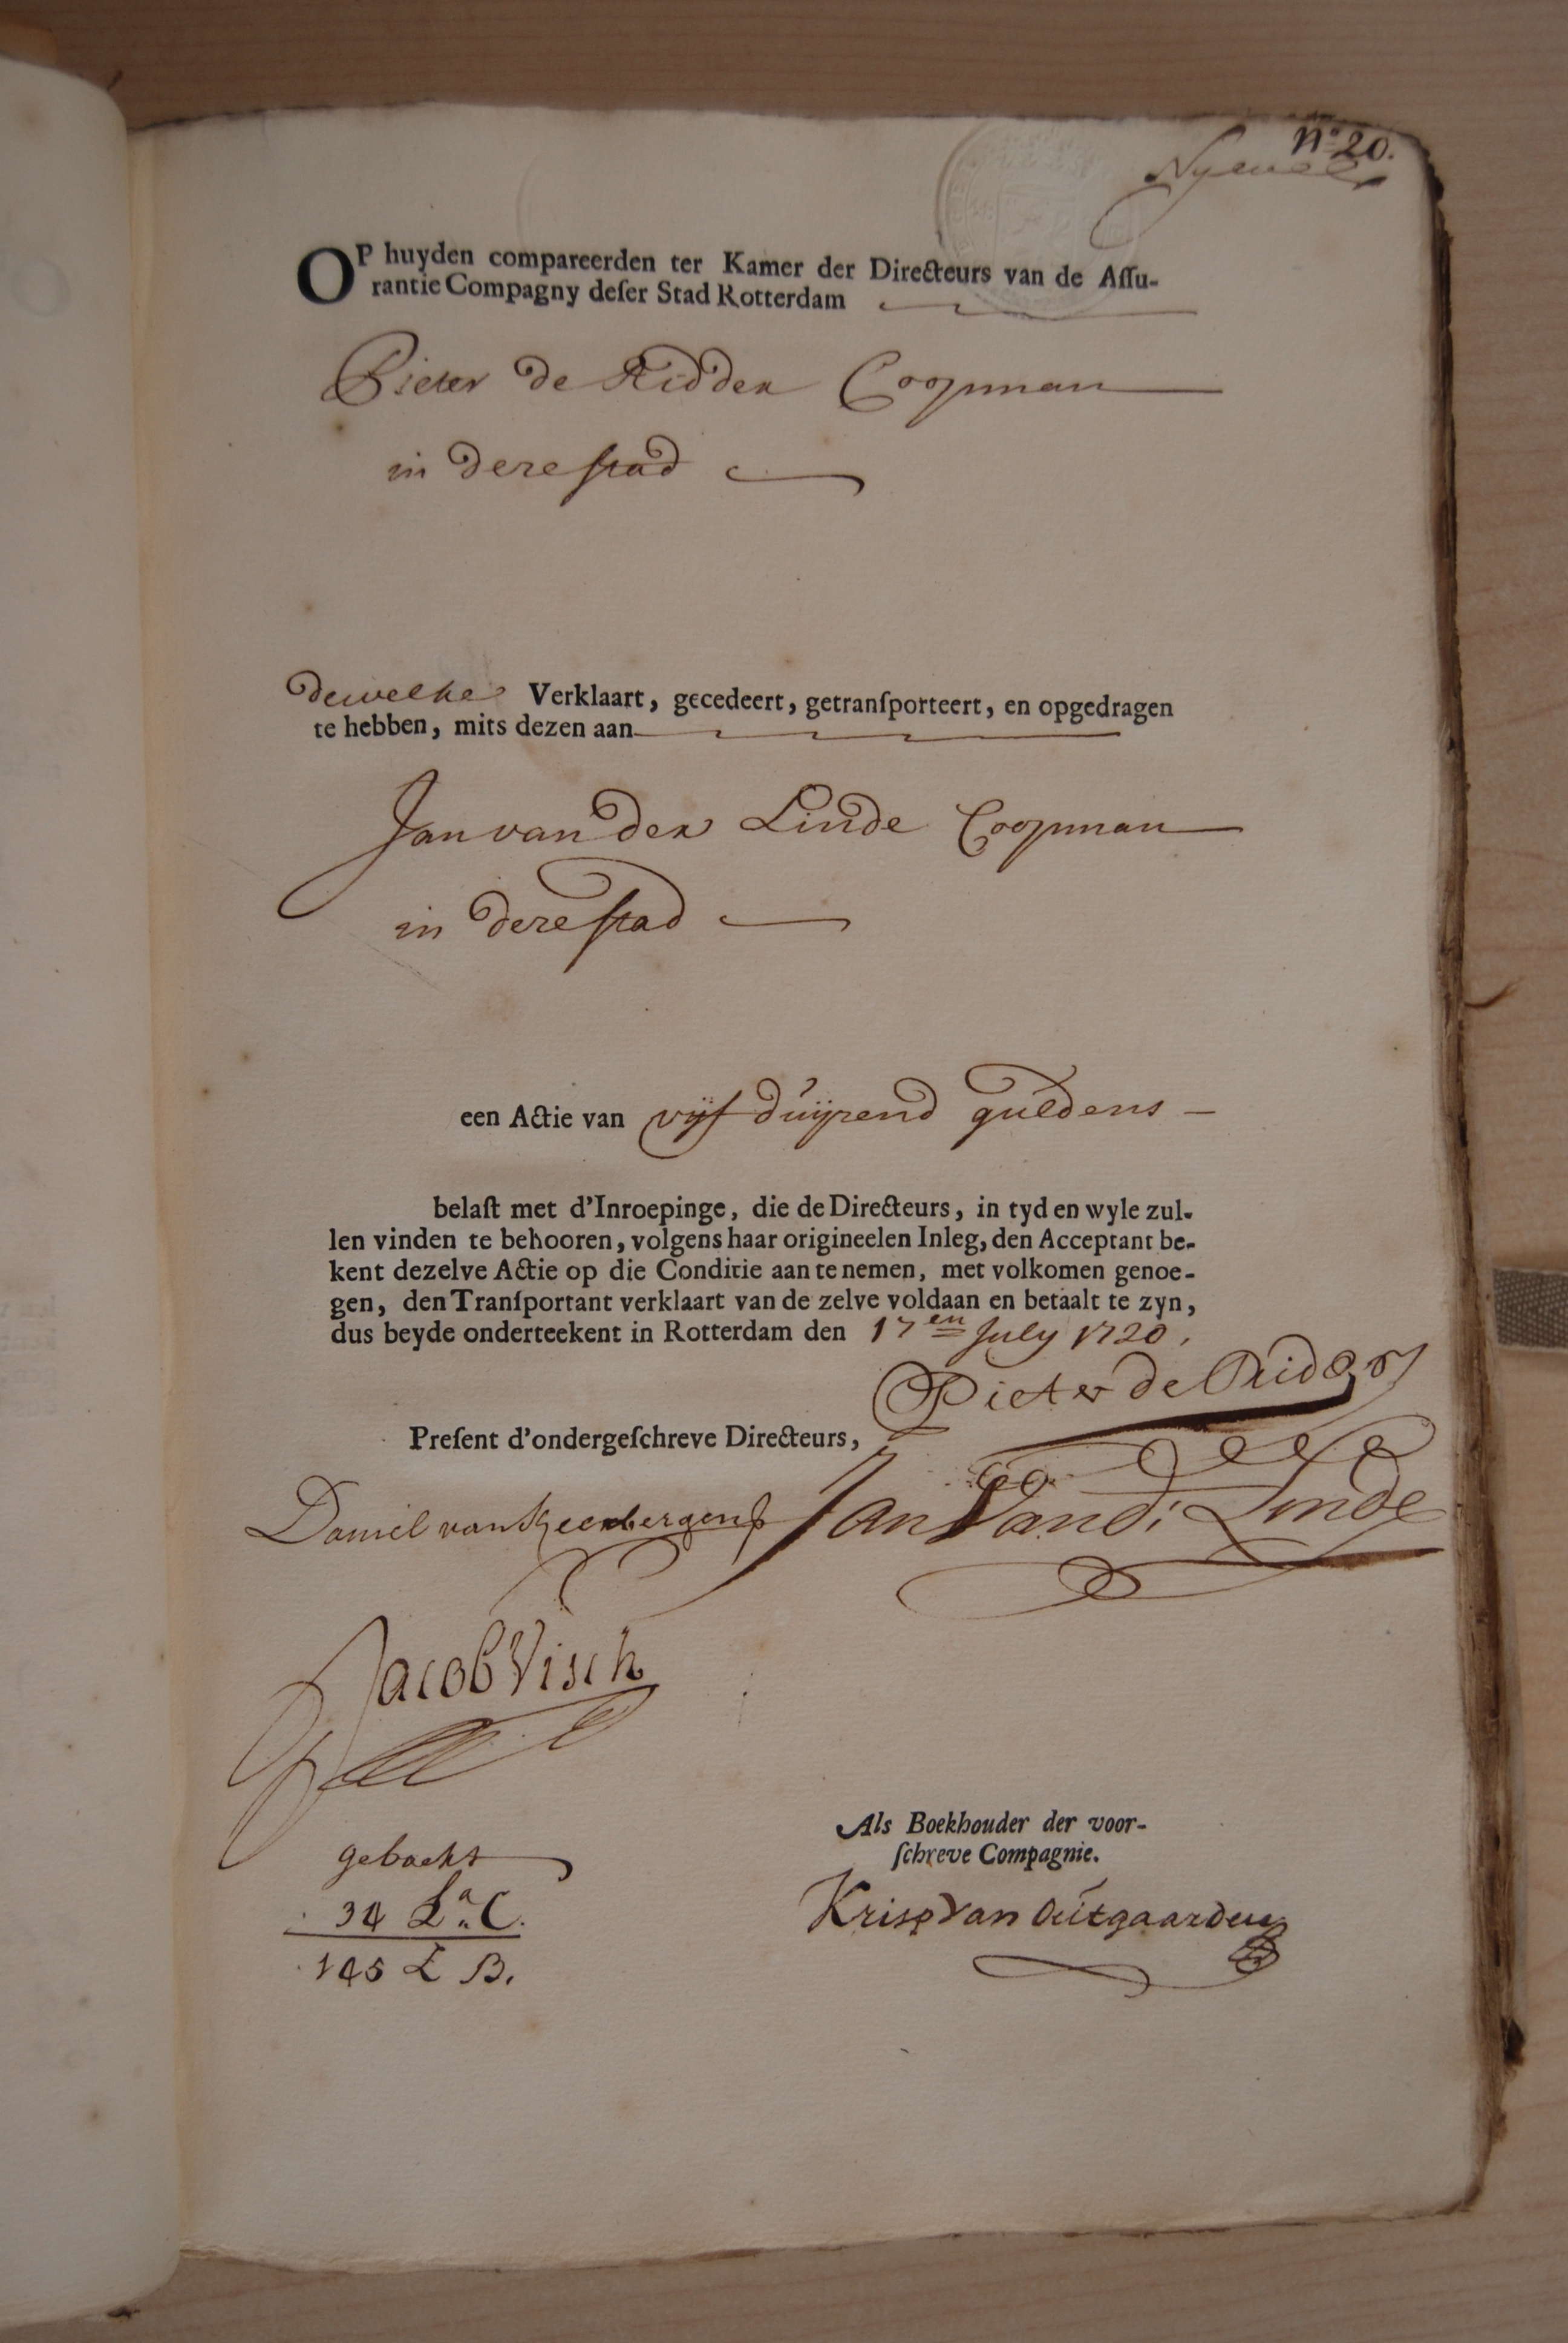 No 20.
OP huyden compareerden ter Kamer der Directeurs van de Assu-
rantie Compagny deser Stad Rotterdam
Pieter de Ridder Coopman
in dese stad
dewelke Verklaart, gecedeert, getransporteert, en opgedragen
te hebben, mits dezen aan
Jan van der Linde Coopman
in dese stad
een Actie van vijf duijzend guldens
belast met d'Inroepinge, die de Directeurs, in tyd en wyle zul-
len vinden te behooren, volgens haar origineelen Inleg, den Acceptant be-
kent dezelve Actie op die Conditie aan te nemen, met volkomen genoe-
gen, den Transportant verklaart van de zelve voldaan en betaalt te zyn,
dus beyde onderteekent in Rotterdam den 17en July 1720.
Pieter de Ridder
Present d'ondergeschreve Directeurs,
Daniel van
Jan Vand: Linde
Jacob Visch
Als Boekhouder der voor-
schreve Compagnie.
geboekt
34 La. C.
145 L B.
Krisp van Outgaarden